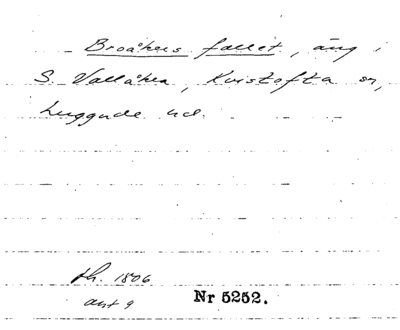 Broåkers fallet, äng i
S. Vallåkra, Kvistofta sn,
Luggude hd.
th. 1806
akt 9
Nr 5252.